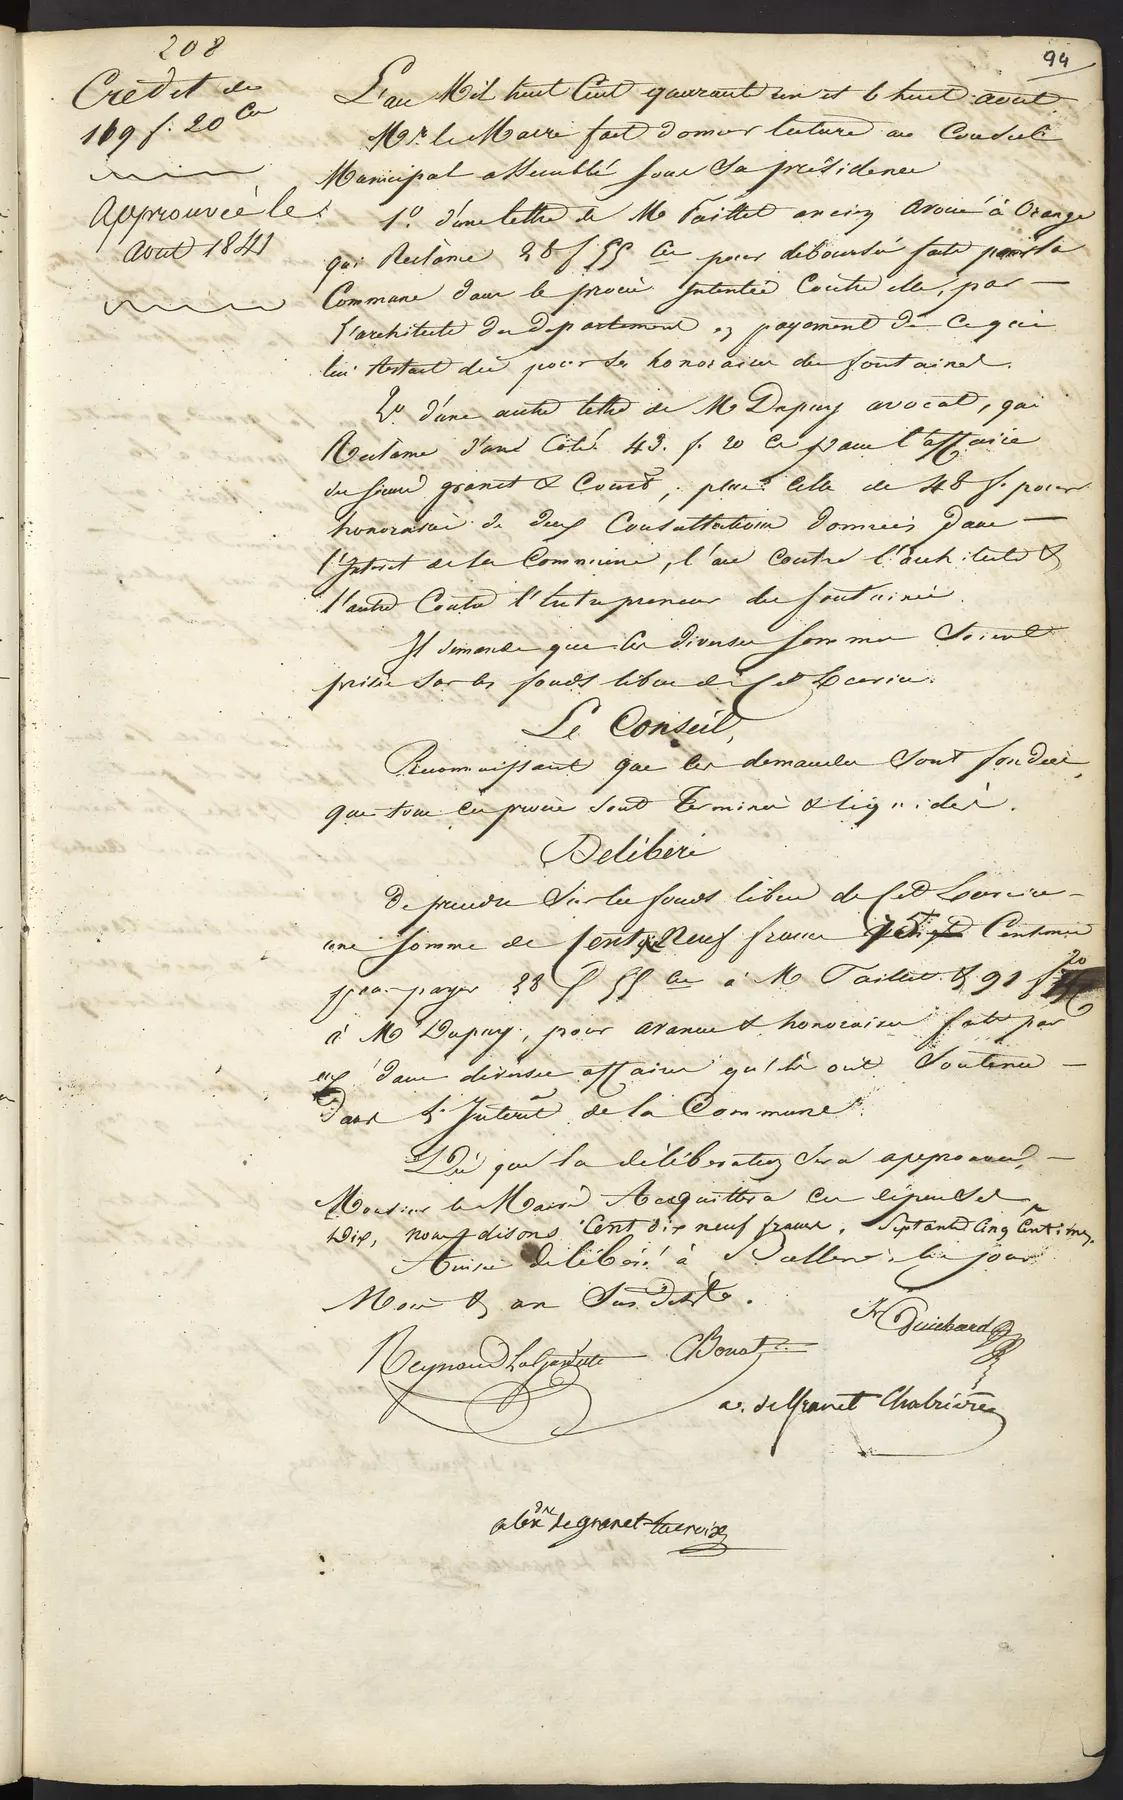 208
94
Credit de
119 f. 20 ces
Approuvée le
Aout 1841
L'an Mil huit Cent quarante un et le huit aout
Mr. le Maire fait donner lecture au Conseil
Municipal assemblé sous sa présidence
1º. d'une lettre de Mr Taillet ancien avoué à Orange
qui Réclame 28 f 55 ces pour déboursés faits pour la
Commune dans le procès intenté Contre elle, par —
l'architecte du département en payement de ce qui
lui Restait dû pour ses honoraires des fontaines.
2º. d'une autre lettre de Mr Dupuy avocat, qui
Réclame d'une Coté 43. f. 20 ces pour l'affaire
des sieurs granet & , plus Celle de 48 f. pour
honoraires de deux Consultations données dans —
l'Interet de la Commune, l'une Contre l'architecte &
l'autre Contre l'Entrepreneur des fontaines.
Il demande que les diverses sommes soient
prises sur les fonds libres de Cet Exercice.
Le Conseil,
Reconnaissant que les demandes sont fondées,
que tous ces procès sont Terminés & liquidés.
Délibère
De prendre sur les fonds libres de Cet Exercice —
une somme de Cent Neuf francs Centimes
pour payer 28 f 55 ces à Mr Taillet & 91 f 20
à Mr Dupuy, pour avances & honoraires faits par
eux dans diverses affaires qu'ils ont Soutenu —
Dans L'Interêt de la Commune.
Dès que la délibération sera approuvée, —
Monsieur le Maire Acquittera ces dépenses
Dix, nous disons Cent dix neuf francs, Septante Cinq Centimes.
Ainsi délibéré à les jour
Mois & an Susdits.
Guichard
Reynaud Lagardette Bonat
a. de Granet Chabrières
alexdre de granet-lacroix